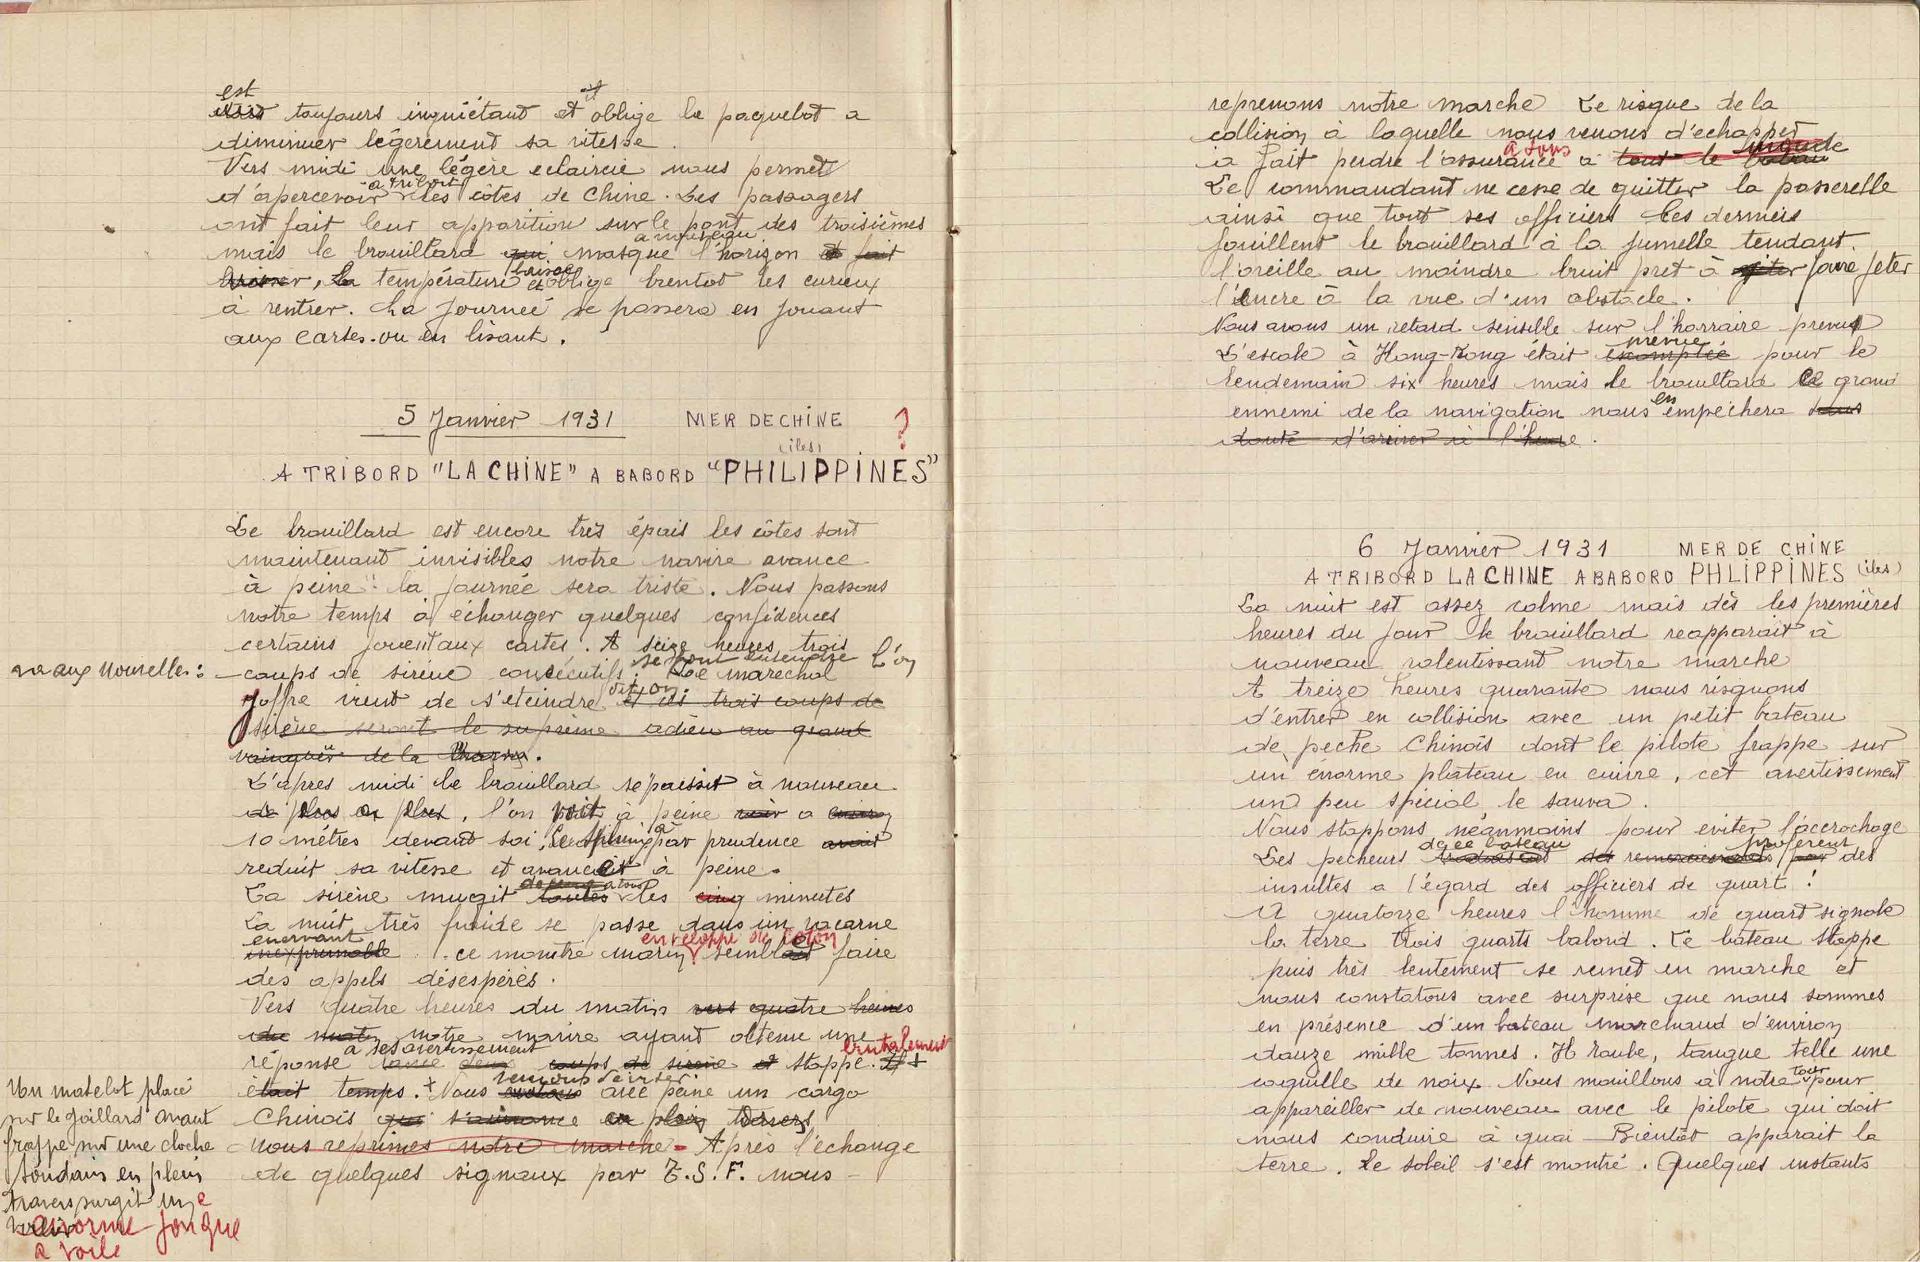 est
était toujours inquiétant et oblige le paquebot a
diminuer légèrement sa vitesse.
Vers midi une légère eclaircie nous permet
a tribord
d'apercevoir les côtes de Chine. Les passagers
ont fait leur apparition sur le pont des troisièmes
a nouveau
mais le brouillard qui masque l'horizon et fait
baisse
baisser, la température et oblige bientot les curieux
à rentrer. La journée se passera en jouant
aux cartes ou en lisant.
5 Janvier 1931 MER DE CHINE ?
(iles)
A TRIBORD "LA CHINE" A BABORD "PHILIPPINES"
Le brouillard est encore très épais les côtes sont
maintenant invisibles notre navire avance
à peine !! la journée sera triste. Nous passons
notre temps à échanger quelques confidences
certains jouent aux cartes. A seize heures trois
se font entendre L'on
va aux nouvelles : coups de sirène consécutifs : Le marechal
dit-on :
Joffre vient de s'eteindre et ces trois coups de
sirène seront le suprème adieu au grand
vainqueur de la Marne.
L'apres midi le brouillard s'epaissit à nouveau
de plus en plus, l'on voit à peine a
10 mètres devant soi, Le par prudence avait
a
reduit sa vitesse et avance à peine.
La sirène mugit toutes les cinq minutes
La nuit très froide se passe dans un vacarne
enervant enveloppé de coton
inexprimable . ce monstre marin semblait faire
des appels désespérés.
Vers quatre heures du matin vers quatre heures
du matin notre navire ayant obtenu une
a ses avertissement brutalement
réponse coups de sirène et stoppe. Il
venons d'eviter
était temps. + Nous avions avec peine un cargo
Chinois qui s'avance en plein travers
nous reprimes notre marche - Après l'échange
de quelques signaux par T.S.F. nous -
Un matelot placé
sur le gaillard avant
frappe sur une cloche
soudain en plein
travers surgit une
enorme jonque
a voile
reprenons notre marche Le risque de la
collision à laquelle nous venons d'echapper
à tous
a fait perdre l'assurance a tout le monde
bateau
Le commandant ne cesse de quitter la passerelle
ainsi que tout ses officiers Ces derniers
fouillent le brouillard à la jumelle tendant
l'oreille au moindre bruit pret à faire jeter
l'encre à la vue d'un obstacle.
Nous avons un retard sensible sur l'horraire prevu
prevue
L'escale à Hong-Kong était escomptée pour le
lendemain six heures mais le brouillard ce grand
en
ennemi de la navigation nous empêchera sans
doute d'arriver à l'heure.
6 Janvier 1931 MER DE CHINE
A TRIBORD LA CHINE A BABORD PHLIPPINES (iles)
La nuit est assez calme mais dès les premières
heures du jour le brouillard reapparait à
nouveau ralentissant notre marche
A treize heures quarante nous risquons
d'entrer en collision avec un petit bateau
de peche Chinois dont le pilote frappe sur
un énorme plateau en cuivre, cet avertissement
un peu spécial le sauva.
Nous stoppons néanmoins pour eviter l'accrochage
de ce bateau proferent
Les pecheurs des remerciements par des
insultes a l'égard des officiers de quart !
A quatorze heures l'homme de quart signale
la terre trois quarts babord. Le bateau stoppe
puis très lentement se remet en marche et
nous constatons avec surprise que nous sommes
en présence d'un bateau marchand d'environ
douze mille tonnes. Il roule, tangue telle une
tour
coquille de noix. Nous mouillons à notre pour
appareiller de nouveau avec le pilote qui doit
nous conduire à quai - Bientôt apparait la
terre. Le soleil s'est montré. Quelques instants